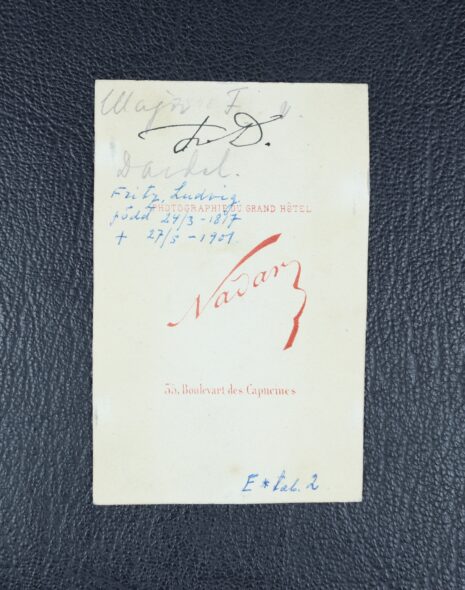 Major F. v.
Fr. D.
Dardel.
Fritz, Ludvig
PHOTOGRAPHIE DU GRAND HÔTEL
född 24/3 - 1817
+ 27/5 - 1901.
Nadar
35, Boulevart des Capucines
E * tab. 2